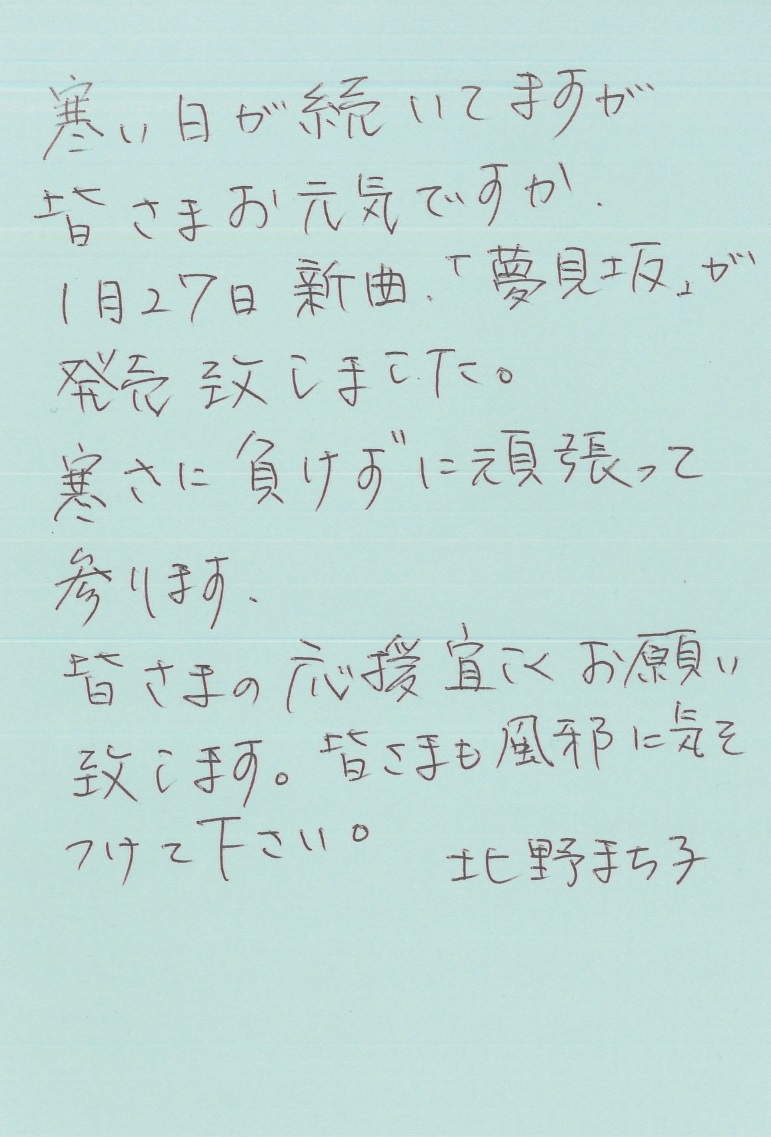 寒い日が続いてますが
皆さまお元気ですか、
1月27日 新曲、「夢見坂」が
発売致しました。
寒さに負けずに頑張って
参ります、
皆さまの応援宜しくお願い
致します。皆さまも風邪に気を
つけて下さい。 北野まち子